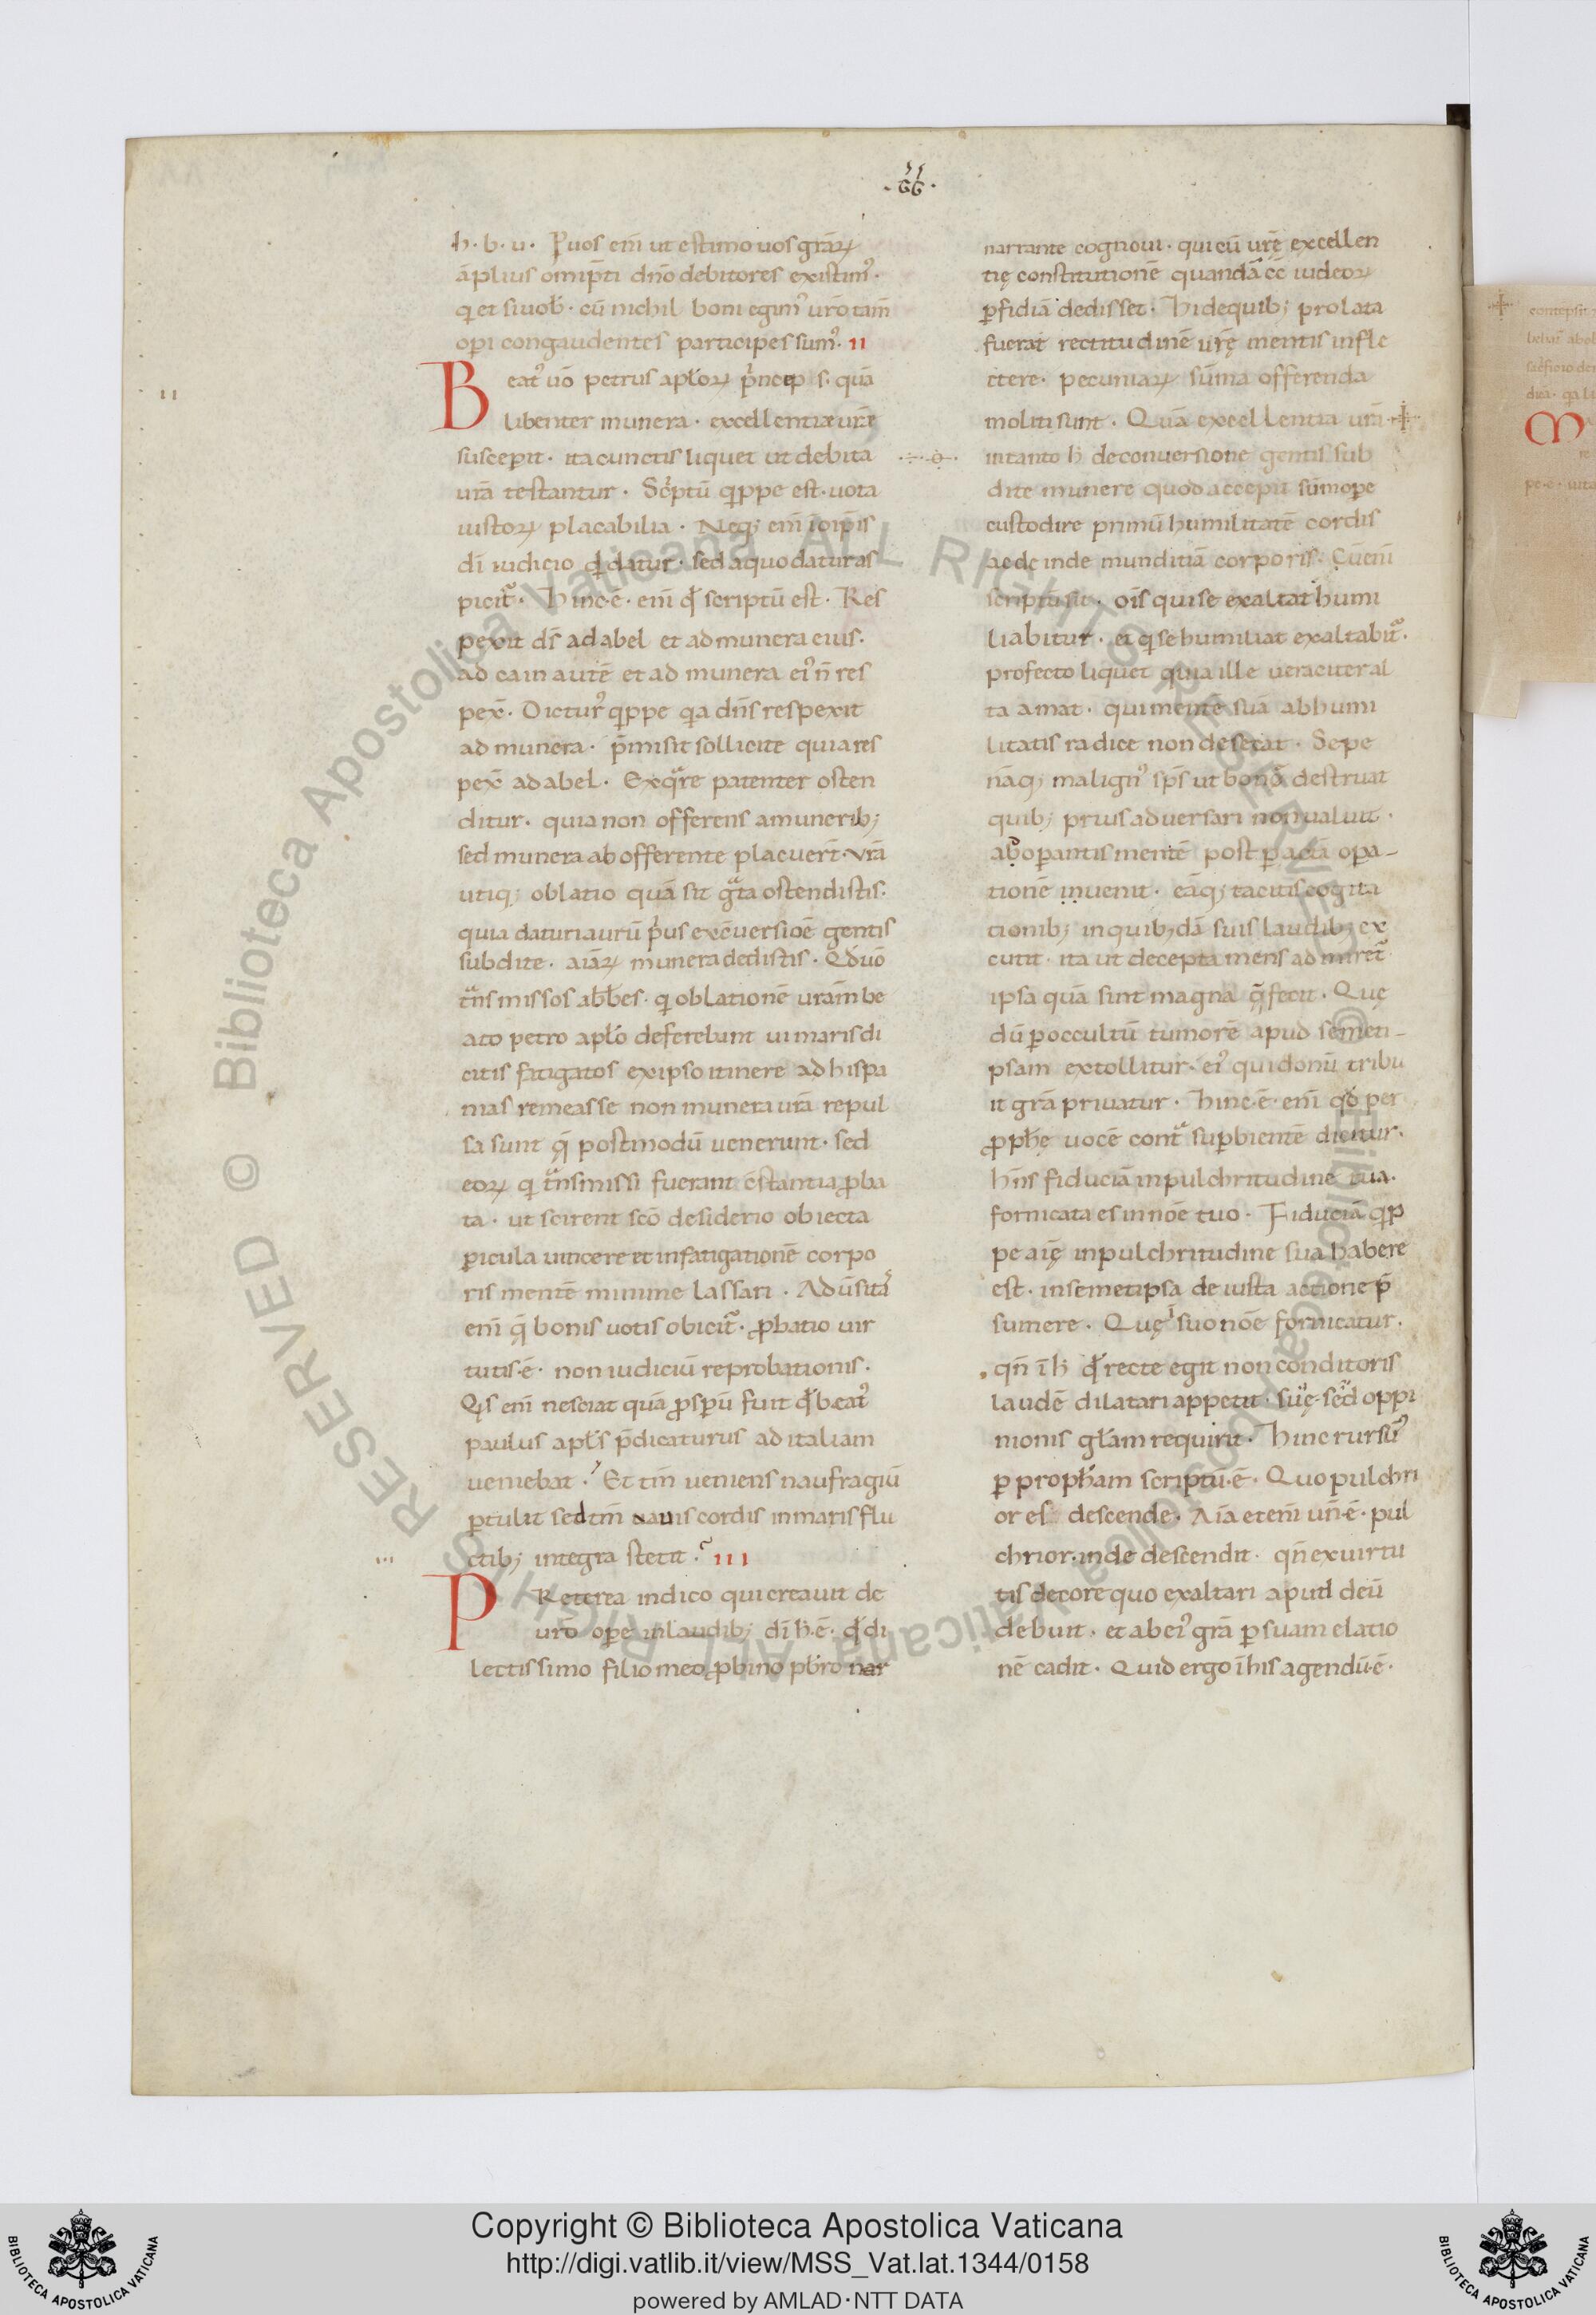 h. b. u. P uos em̄ ut estimo uos gr̄arꝝ
āplius omip̄ti dn̄o debitores existim᷒.
q et si uob̄. cū nichil boni egim᷒ ur̄o tam̄
opi congaudentes participes sum᷒. II
II
Beat᷒ uō petrus apl̄orꝝ p̄ncep s. quā
libenter munera. excellentiæ ur̄e
suscepit. ita cunctis liquet ut debita
urā testantur. Sc̄ptū qippe est. uota
iustorꝝ placabilia. Neq; em̄ ī oip̄is
dī iudicio qd datur. sed a quo datur as
picit᷑. Hinc.ē. em̄ qd̄ scriptū est. Res
pexit ds̄ ad abel et ad munera eius.
ad cain autē et ad munera ei᷒ n̄ res
pex̄. Dictur᷒ qippe qa dn̄s respexit
ad munera. p̄misit sollicite quia res
pex̄ ad abel. Ex qͣ re patenter osten
ditur. quia non offerens a munerib;
sed munera ab offerente placuer̄. urā
utiq; oblatio quā sit gͣta ostendistis.
quia daturi aurū p̄us ex cͦuersiōe gentis
subdite. aīarꝝ munera dedistis. Qd̄ uō
tͣnsmissos ab̄bes. qi oblationē uram̄ be
ato petro apl̄o deferebant ui maris di
citis fatigatos ex ipso itinere ad hispa
nias remeasse non munera urā repul
sa sunt q̄ postmodū uenerunt. sed
eorꝝ qi tͣnsmissi fuerant cͦstantia ꝓba
ta. ut scirent scō desiderio obiecta
ꝑicula uincere et in fatigationē corpo
ris mentē minime lassari. Adusitaͣ
em̄ q̄ bonis uotis obicit᷑. ꝓbatio uir
tutis.ē. non iudiciū reprobationis.
Qis em̄ nesciat quā ꝓspū fuit qd̄ beat᷒
paulus apl̄s p̄dicaturus ad italiam
ueniebat. Et tm̄ ueniens naufragiū
ꝑtulit sed tm̄ nauis cordis in maris flu
ctib; integra stetit. III
III
PReterea indico qui creauit de
ur̄o ope in laudib; dī h̄.ē. qd̄ di
lectissimo filio meo ꝓbino pb̄ro nar
narrante cognoui. qui cū urę̄ excellen
tię constitutionē quandā cͦ iudeorꝝ
ꝑfidiā dedisset. Hi de quib; prolata
fuerat rectitudinē urę̄ mentis infle
ctere. pecuniarꝝ sūma offerenda
moliti sunt. Quā excellentia urā
in tanto h̄ de conuersione gentis sub
dite munere quod accepit sūmope
custodire primū humilitatē cordis
ac de inde munditiā corporis. Cū em̄
scriptū sit. oīs qui se exaltat humi
liabitur. et q se humiliat exaltabit᷑.
profecto liquet quia ille ueraciter al
ta amat. qui mentē suā ab humi
litatis radice non deserat. Sepe
nāq; malign᷒ sps̄ ut bona destruat
quib; prius aduersari non ualuit.
ab opantis mentē post ꝑactā opa-
tionē inuenit. eāq; tacitis cogita
tionib; in quib;dā suis laudib; ex
cutit. ita ut decepta mens admiret᷑
ipsa quā sint magna q̄ fecit. Quę
dū ꝑ occultū tumorē apud semeti-
psam extollitur. ei᷒ qui donū tribu
it gr̄a priuatur. Hinc.ē. em̄ qd̄ per
ꝓph̄ę uocē contͣ suꝑbientē dicitur.
hn̄s fiduciā in pulchritudine tua.
fornicata es in nōe tuo. Fiduciā qip
pe aīę in pulchritudine sua habere
est. in semetipsa de iusta actione p̄
sumere. Quę ī suo nōe fornicatur.
qn̄ ī h̄ qd̄ recte egit non conditoris
laudē dilatari appetit. suę sed oppi
nionis gl̄am requirit. Hinc rursū
ꝑ proph̄am scriptū.ē. Quo pulchri
or es descende. Aīa et em̄ un̄.ē. pul
chrior. inde descendit. qn̄ ex uirtu
tis decore quo exaltari apud deū
debuit. et ab ei᷒ gr̄a ꝑ suam elatio
nē cadit. Quid ergo ī his agendū.ē.
© Biblioteca Apostolica Vaticana ALL RIGHTS RESERVED
© Biblioteca Apostolica Vaticana ALL RIGHTS RESERVED
BIBLIOTECA APOSTOLICA VATICANA
Copyright © Biblioteca Apostolica Vaticana
http://digi.vatlib.it/view/MSS_Vat.lat.1344/0158
powered by AMLAD·NTT DATA
BIBLIOTECA APOSTOLICA VATICANA